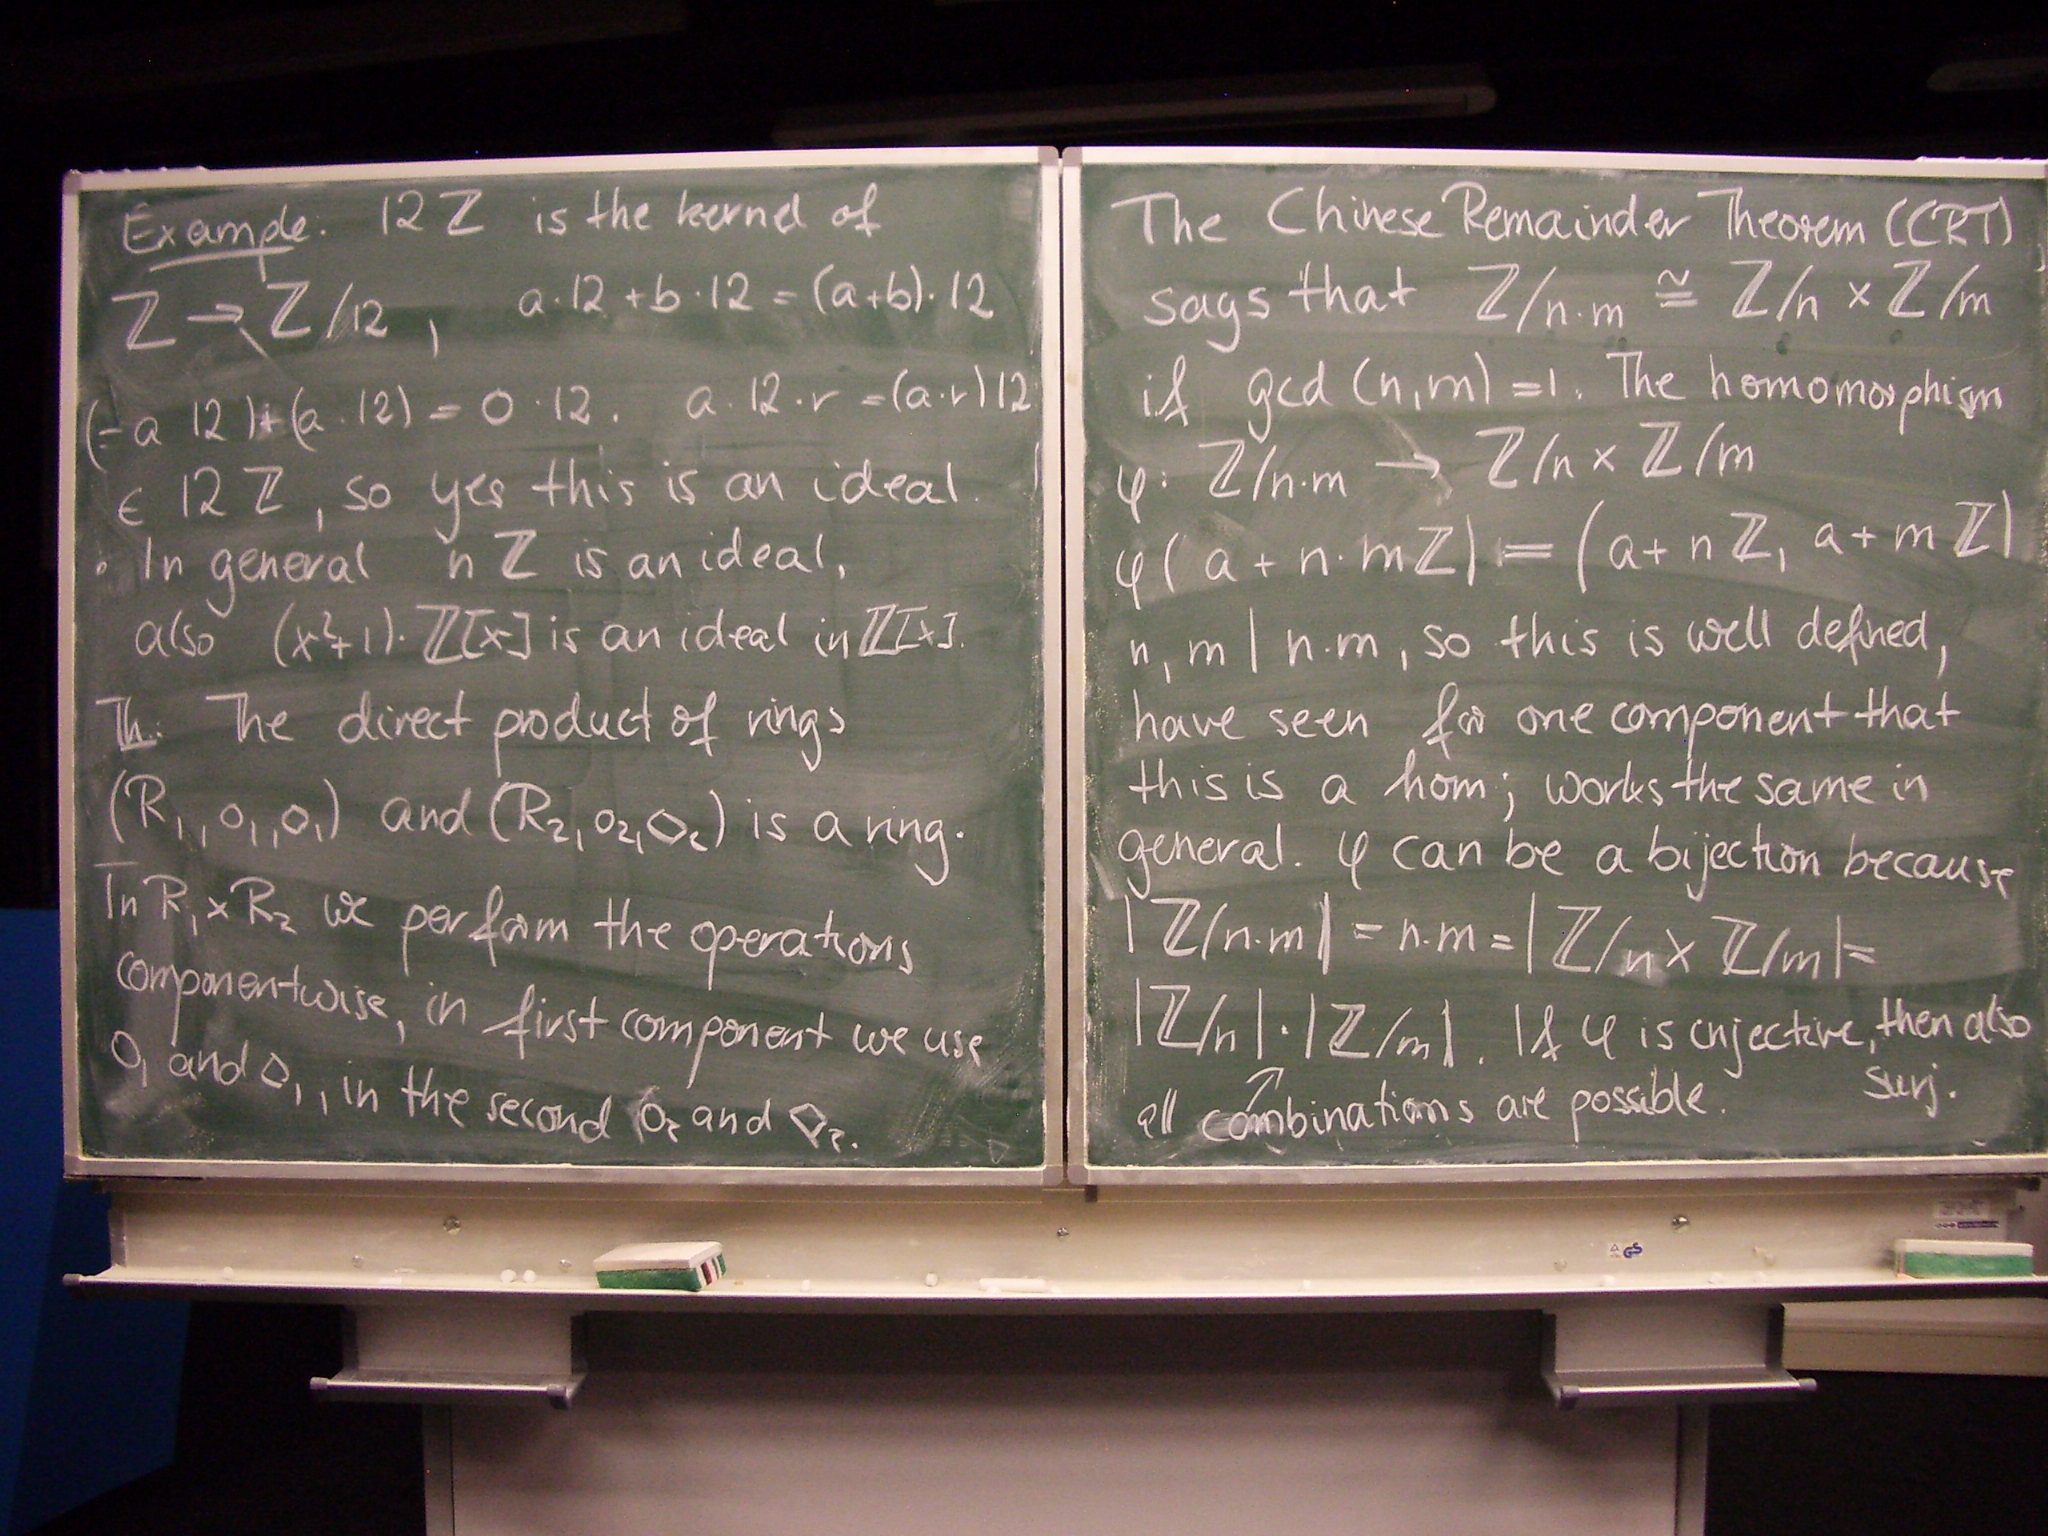 Example: 12ℤ is the kernel of
ℤ → ℤ/12, a·12 + b·12 = (a+b)·12
(-a 12)+(a·12) = 0·12. a·12·r = (a·r)12
∈ 12ℤ, so yes this is an ideal.
• In general nℤ is an ideal,
also (x²+1)·ℤ[x] is an ideal in ℤ[x].
Th: The direct product of rings
(R₁,∘₁,◇₁) and (R₂,∘₂,◇₂) is a ring.
In R₁×R₂ we perform the operations
componentwise, in first component we use
∘₁ and ◇₁, in the second ∘₂ and ◇₂.
The Chinese Remainder Theorem (CRT)
says that ℤ/n·m ≅ ℤ/n × ℤ/m
if gcd (n,m) = 1. The homomorphism
φ: ℤ/n·m → ℤ/n × ℤ/m
φ(a + n·mℤ) = (a+nℤ, a+mℤ)
n, m | n·m, so this is well defined,
have seen for one component that
this is a hom; works the same in
general. φ can be a bijection because
|ℤ/n·m| = n·m = |ℤ/n × ℤ/m| =
|ℤ/n|·|ℤ/m|. If φ is injective, then also
surj.
↗
all combinations are possible.
GS